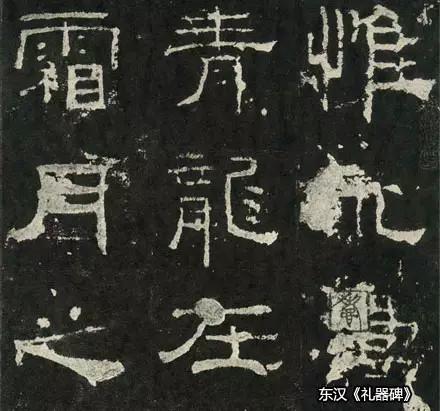 惟永壽
青龍在
霜月之
东汉《礼器碑》